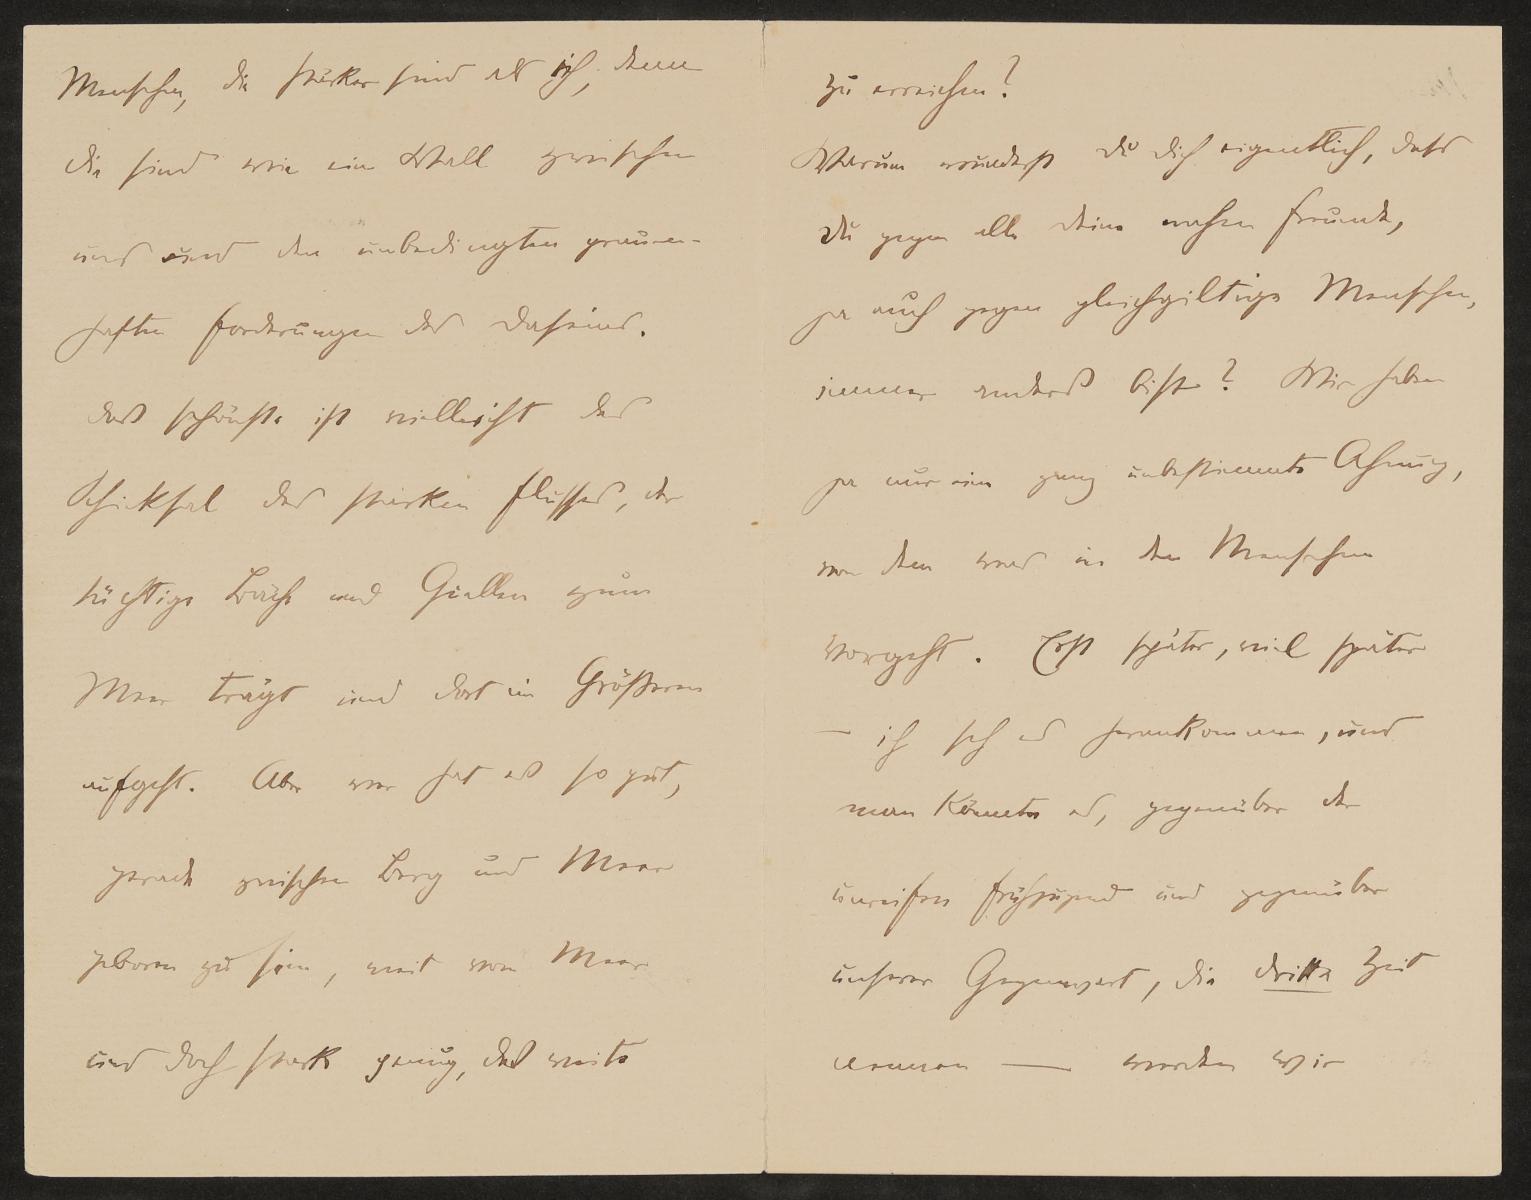 Menschen, die stärker sind als ich, denn
die sind wie ein Wall zwischen
uns und den unbedingten grauen-
haften Forderungen des Daseins.
das schönste ist vielleicht das
Schicksal des starken Flusses, der
tüchtige Bäche und Quellen zum
Meer trägt und dort im Größeren
aufgeht. Aber wer hat es so gut,
gerade zwischen Berg und Meer
geboren zu sein, weit vom Meer
und doch stark genug, das weite
zu erreichen?
Warum wunderst du dich eigentlich, dass
du gegen alle deine nahen Freunde,
ja auch gegen gleichgiltige Menschen,
immer anders bist? Wir haben
ja nur eine ganz unbestimmte Ahnung,
von dem was in den Menschen
vorgeht. Erst später, viel später
– ich seh es herankommen, und
man könnte es, gegenüber der
unreifen Frühjugend und gegenüber
unserer Gegenwart, die dritte Zeit
nennen — werden wir